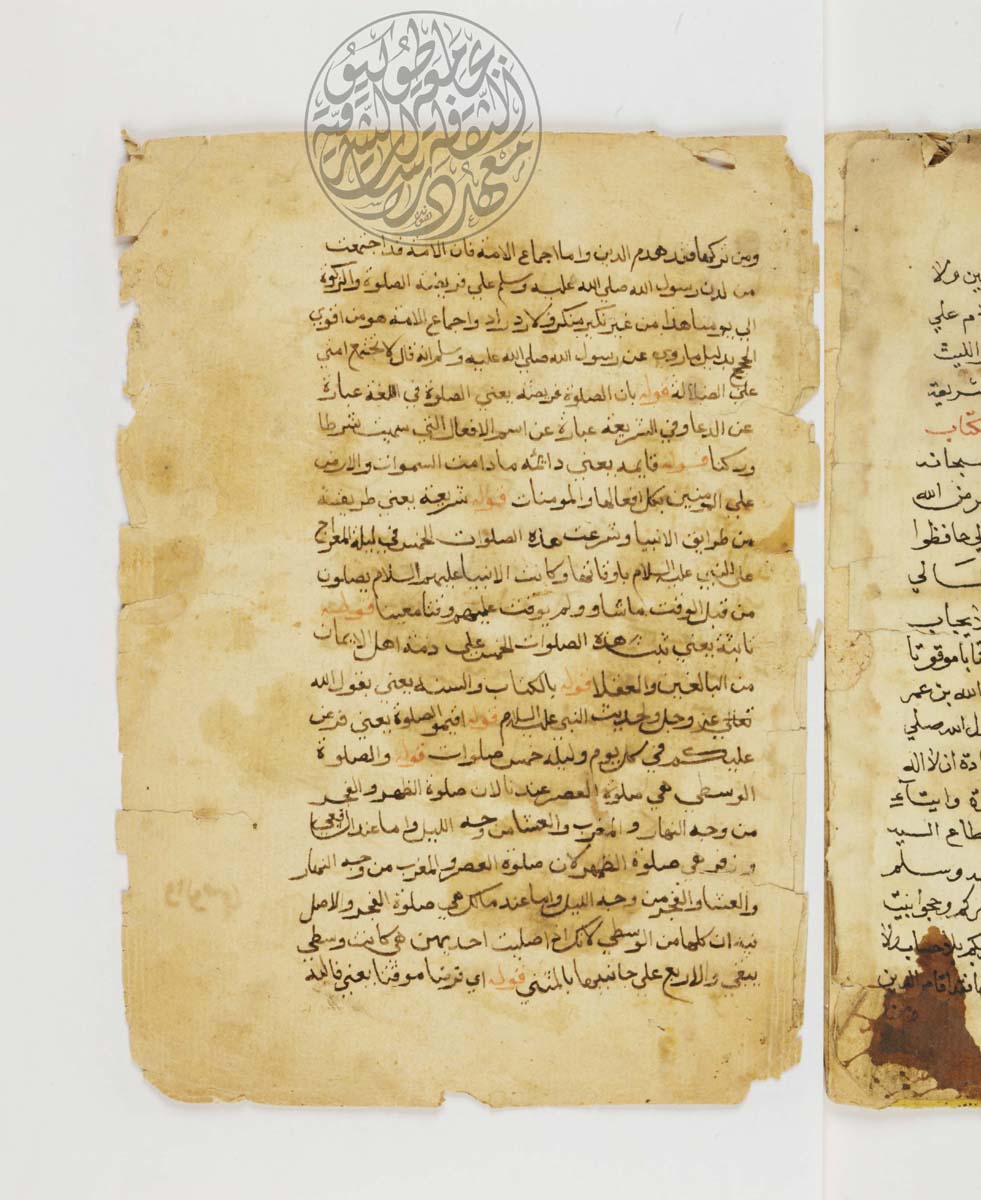 ومن تركها فقد هدم الدين واما اجماع الامة فان الامة قد اجتمعت
من لدن رسول الله صلي الله عليه وسلم علي فريضة الصلوة والزكوة
الي يومنا هذا من غير نكير منكر ولا رد راد واجماع الامة هو من اقوي
الحجج بدليل ما روي عن رسول الله صلي الله عليه وسلم انه قال لا تجتمع امتي
علي الضلالة قوله بان الصلوة فريضة يعني الصلوة في اللغة عبارة
عن الدعا وفي الشريعة عبارة عن اسم الافعال التي سميت شرطا
وركنا قوله قايمه يعني دائمه ما دامت السموات والارض
علي المومنين بكل افعالها والمومنات قوله شريعة يعني طريقة
من طرايق الانبيا وشرعت هذه الصلوات الخمس في ليلة المعراج
علي النبي عليه السلام باوقاتها وكانت الانبيا عليهم السلام يصلون
من قبل الوقت ما شاو ولم يوقت عليهم وقتا معينا قوله
ثابتة يعني ثبت هذه الصلوات الخمس علي ذمة اهل الايمان
من البالغين والعقلا قوله بالكتاب والسنه يعني بقول الله
تعالي عز وجل ولحديث النبي عليه السلام قوله اقيمو الصلوة يعني فرض
عليكم في كل يوم وليلة خمس صلوات قوله والصلوة
الوسطي هي صلوة العصر عندنا لان صلوة الظهر والفجر
من وجه النهار والمغرب والعشا من وجه الليل واما عند الشافعي
وزفر هي صلوة الظهر لان صلوة العصر والمغرب من وجه النهار
والعشا والفجر من وجه الليل واما عند مالك هي صلوة الفجر والاصل
فيه ان كلها من الوسطي لانك اذا صليت احديهن هي كانت وسطي
يبقي والاربع علي جانبيها بالمثني قوله اي فرضا موقتا يعني فالله
ين ولا
م علي
الليث
شريعة
كتاب
سبحانه
رض الله
لي حافظوا
الي
لايجاب
تابا موقوتا
الله بن عمر
ل الله صلي
ادة ان لا اله
ة وايتآء
طاع السيد
ـه وسلم
ركم وحجوا بيت
بكم بلا حساب ولا
ـها فقد اقام الدين
ومن